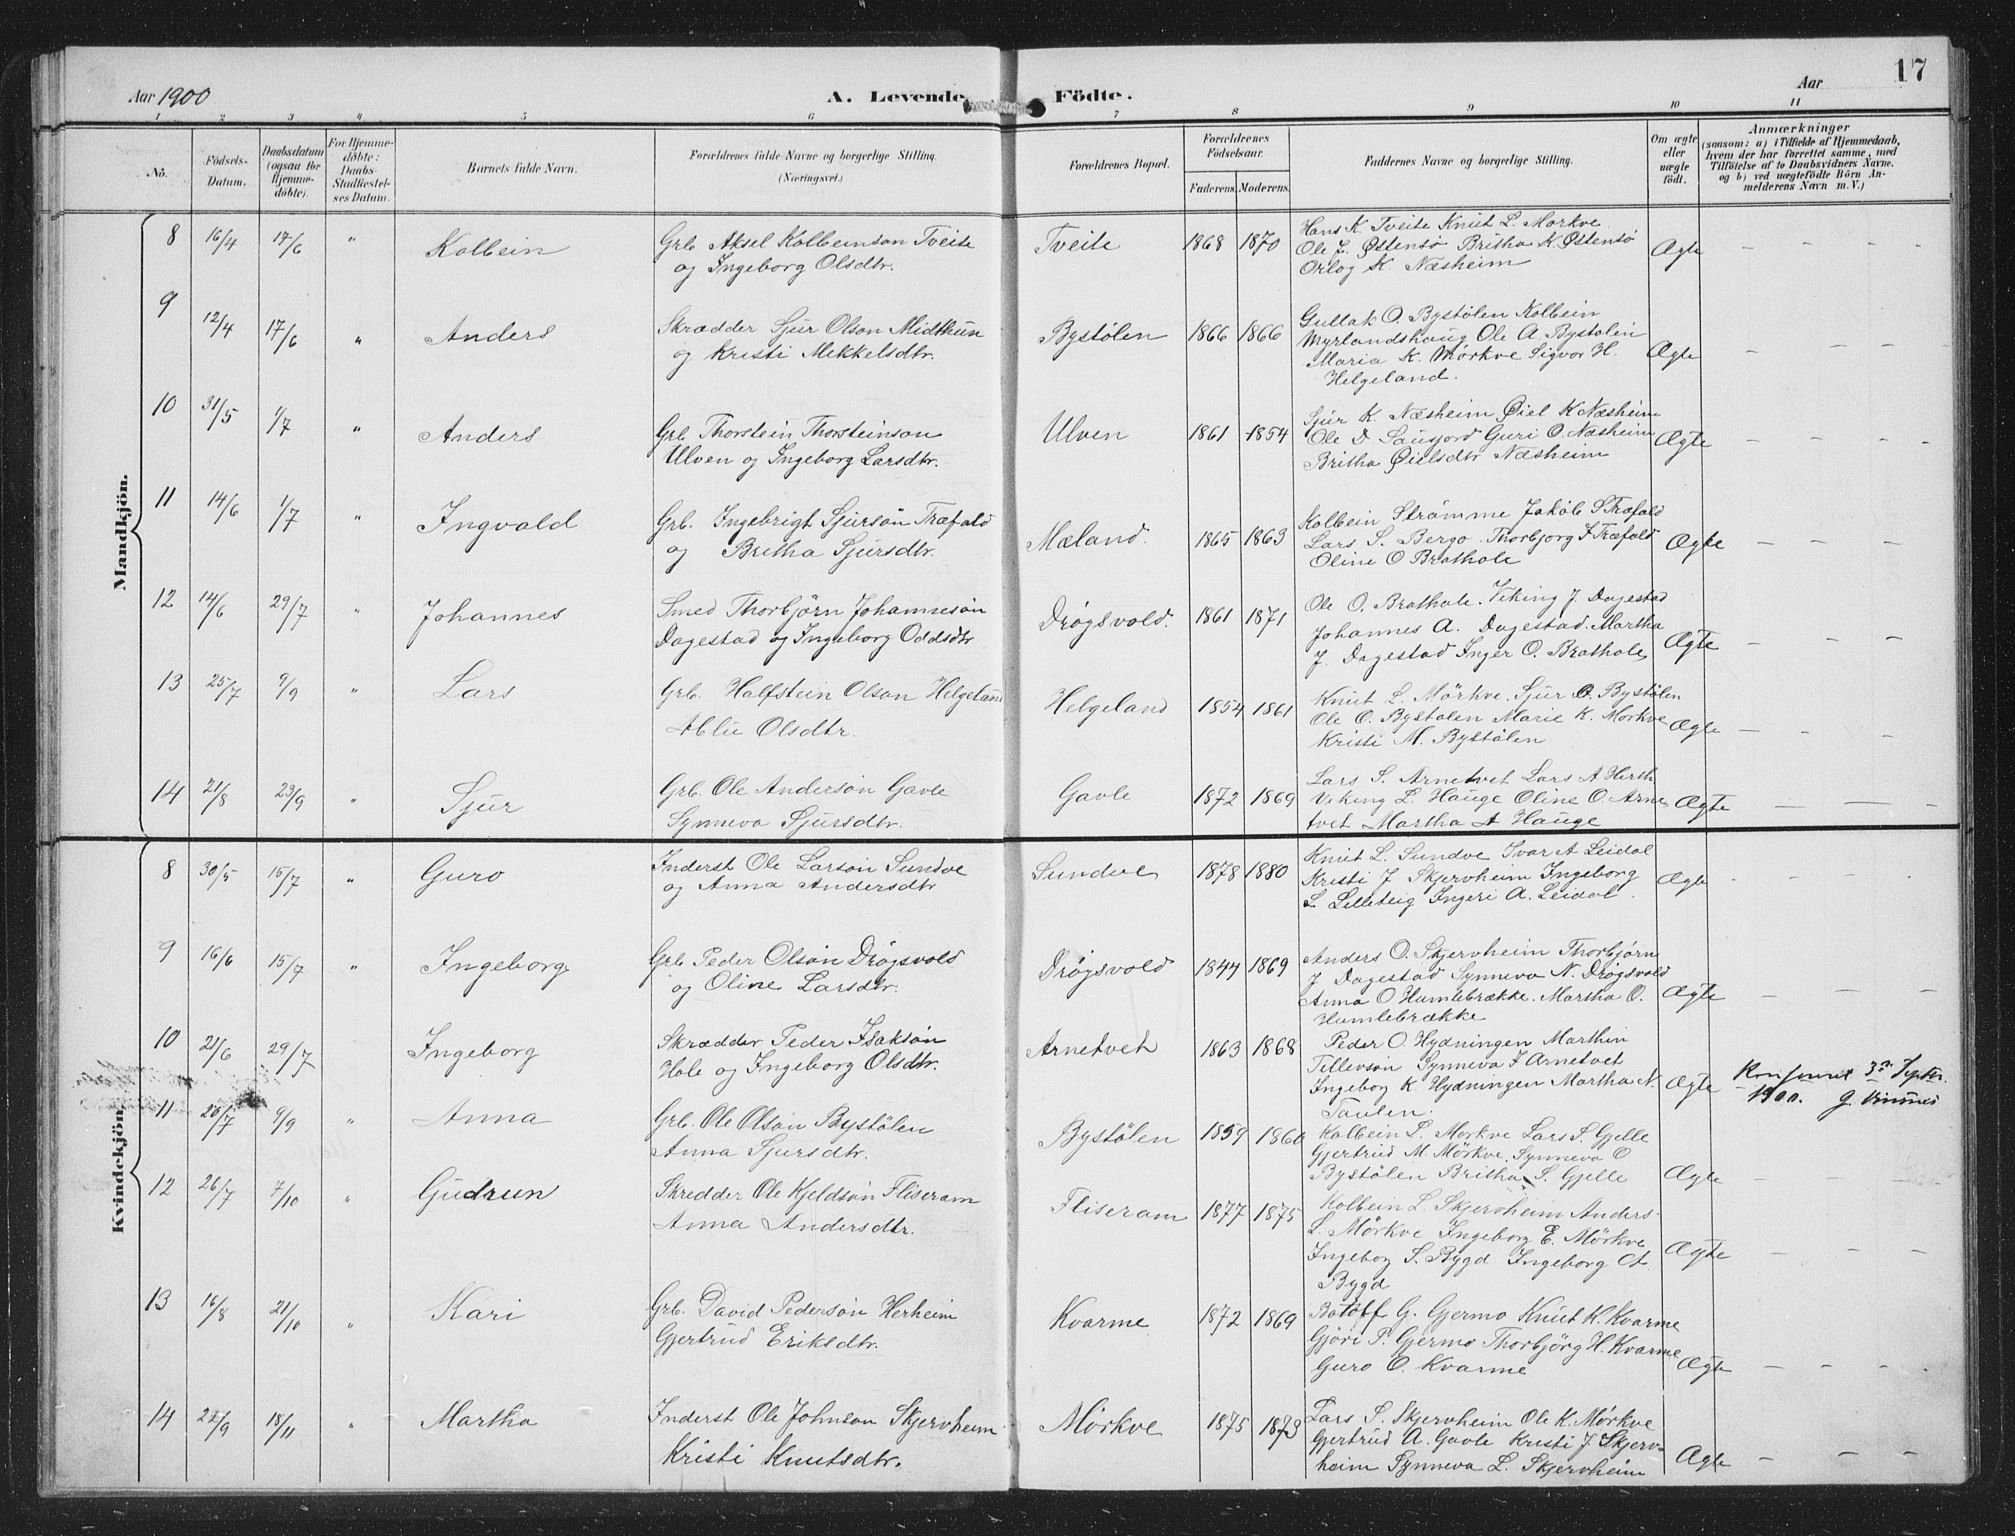 Aar 1900
A. Levende Födte.
Aar
17
1 2 3 4 5 6 7 8 9 10 11
No.
Födsels-Datum.
Daabsdatum (ogsaa for Hjemme-döbte).
For Hjemme-döbte: Daabs-Stadfæstelses Datum.
Barnets fulde Navn.
Forældrenes fulde Navne og borgerlige Stilling. (Næringsvei.)
Forældrenes Bopæl.
Forældrenes Födselsaar.
Faderens. Moderens.
Faddernes Navne og borgerlige Stilling.
Om ægte eller uægte födt.
Anmærkninger
(saasom: a) i Tilfælde af Hjemmedaab, hvem der har forrettet samme, med Tilföielse af to Daabsvidners Navne. og b) ved uægtefödte Börn Anmelderens Navn m. V.)
Mandkjön.
8 16/4 17/6 " Kolbein
Grb. Aksel Kolbeinson Tveite
og Ingeborg Olsdtr.
Tveite 1868 1870
Hans K. Tveite Knut L. Mørkve
Ole J. Østensø Britha K. Østensø
Orlog K. Næsheim
Ægte
9 12/4 17/6 " Anders
Skrædder Sjur Olson Midthun
og Kristi Mekkelsdtr.
Bystølen 1866 1866
Gullak O. Bystølen Kolbein
Myrlandshaug Ole A Bystølen
Maria K. Mørkve Sigvor H.
Helgeland.
Ægte
10 31/5 1/7 " Anders
Grb Thorstein Thorsteinson
Ulven og Ingeborg Larsdtr.
Ulven 1861 1854
Sjur K. Næsheim Øiel K Næsheim
Ole D. Sausjord Guri O. Næsheim
Britha Øielsdtr Næsheim
Ægte
11 14/6 1/7 " Ingvald
Grb. Ingebrigt Sjurson Træfald
og Britha Sjursdtr.
Mæland. 1865 1863
Kolbein Strømme Jakob S Træfald
Lars S. Bergo. Thorbjorg I Træfald
Oline O Brathole
Ægte
12 14/6 29/7 " Johannes
Smed Thorbjørn Johanneson
Dagestad og Ingeborg Oddsdtr
Drøgsvold. 1861 1871
Ole O. Brathole. Viking J. Dagestad
Johannes A. Dagestad. Martha
J. Dagestad Inger O. Brathole
Ægte
13 25/7 9/9 " Lars
Grb. Halfstein Olson Helgeland
Ablu Olsdtr.
Helgeland 1854 1861
Knut L. Mørkve. Sjur O. Bystølen
Ole O. Bystølen Marie K. Mørkve
Kristi M. Bystølen
Ægte
14 21/8 23/9 " Sjur
Grb. Ole Anderson Gavle
Synneva Sjursdtr.
Gavle 1872 1869
Lars S. Arnetvet Lars A Herth.
Viking L. Hauge Oline O. Arne
tvet Martha A Hauge
Ægte
Kvindekjön.
8 30/5 15/7 " Guro
Inderst Ole Larson Sundve
og Anna Andersdtr
Sundve 1878 1880
Knut L. Sundve Ivar A Leidal
Kristi J Skjervheim Ingeborg
L. Lilleteig Ingeri A. Leidal.
Ægte
9 16/6 15/7 " Ingeborg
Grb Peder Olson Drøgsvold
og Oline Larsdtr.
Drøgsvold 1844 1869
Anders O. Skjervheim Thorbjørn
J Dagestad Synneva N. Drøgsvold
Anna O Humlebrække. Martha O.
Humlebrække
Ægte
10 21/6 29/7 Ingeborg
Skrædder Peder Isakson
Hole og Ingeborg Olsdtr.
Arnetvet 1863 1868
Peder O. Hydningen Marthin
Tillevson Synneva I Arnetvet
Ingeborg K Hydningen Martha N.
Taulen.
Ægte
3die Septbr.
1900. G.
11 20/7 9/9 " Anna
Grb. Ole Olson Bystølen
Anna Sjursdtr.
Bystølen 1859 1860
Kolbein L. Mørkve Lars S. Gjelle
Gjertrud M Mørkve. Synneva O
Bystølen Britha S. Gjelle
Ægte
12 26/7 7/10 " Gudrun
Skredder Ole Kjeldson Fliseram
Anna Andersdtr.
Fliseram 1877 1875
Kolbein L. Skjervheim Anders
L. Mørkve Ingeborg E. Mørkve
Ingeborg S. Bygd Ingeborg A.
Bygd
Ægte
13 16/8 21/10 " Kari
Grb. David Pederson Herheim
Gjertrud Eriksdtr.
Kvarme 1872 1869
Botolf G. Gjermo Knut K. Kvarme
Gjøri P. Gjermo Thorbjørg H. Kvarme
Guro O. Kvarme
Ægte
14 22/9 18/11 " Martha
Inderst Ole Johnson Skjervheim
Kristi Knutsdtr.
Mørkve 1875 1873
Lars S. Skjervheim Ole K. Mørkve
Gjertrud A. Gavle Kristi J Skjerv-
heim Synneva L. Skjervheim
Ægte